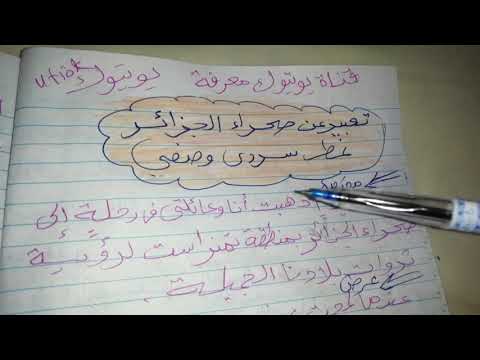 قناة يوتيوك معرفة يوتيوك utiok
تعبير عن صحراء الجزائر
نمط سردي وصفي
مقدمة
ذهبت أنا وعائلتي في رحلة إلى
صحراء الجزائر بمنطقة تمنراست لرؤية
ثروات بلادنا الجميلة
عرض
عندما